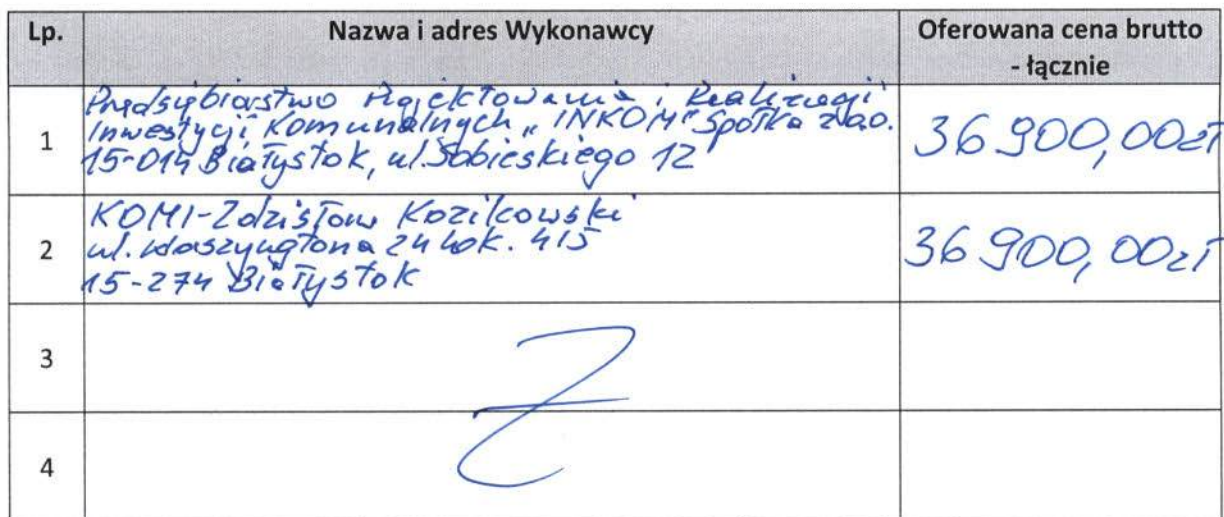 Lp. Nazwa i adres Wykonawcy Oferowana cena brutto - łącznie
1 Przedsiębiorstwo Projektowania i Realizacji
Inwestycji Komunalnych „INKOM" Spółka z o.o.
15-014 Białystok, ul. Sobieskiego 12
36 900,00zł
2 KOMI-Zdzisław Kozikowski
ul. Waszyngtona 24 lok. 415
15-274 Białystok
36 900,00zł
3
4